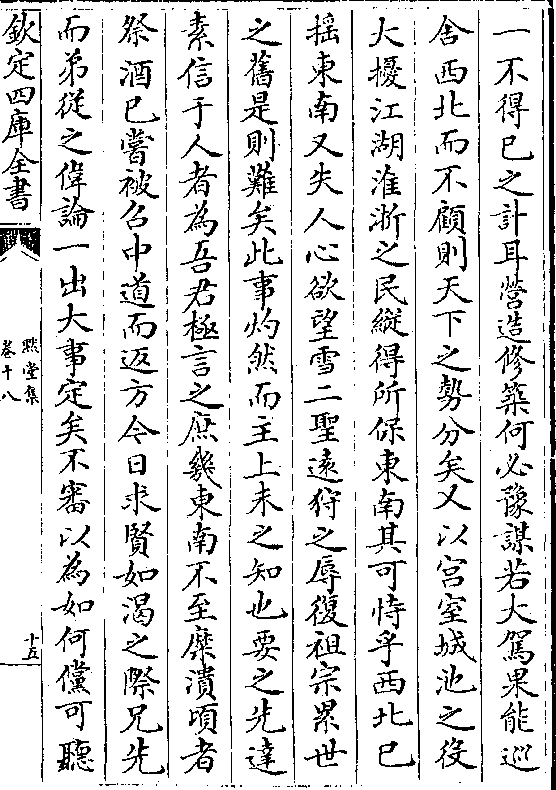 一不得已之計耳營造修築何必豫謀若大駕果能巡
舍西北而不顧則天下之勢分矣又以宫室城池之役
大擾江湖淮浙之民縱得所保東南其可恃乎西北已
揺東南又失人心欲望雪二聖逺狩之辱復祖宗累世
之舊是則難矣此事灼然而主上未之知也要之先達
素信于人者為吾君極言之庶幾東南不至糜潰頃者
祭酒已嘗被召中道而返方今日求賢如渴之際兄先
而弟從之偉論一出大事定矣不審以為如何儻可聽
欽定四庫全書
默堂集
卷十八
十五